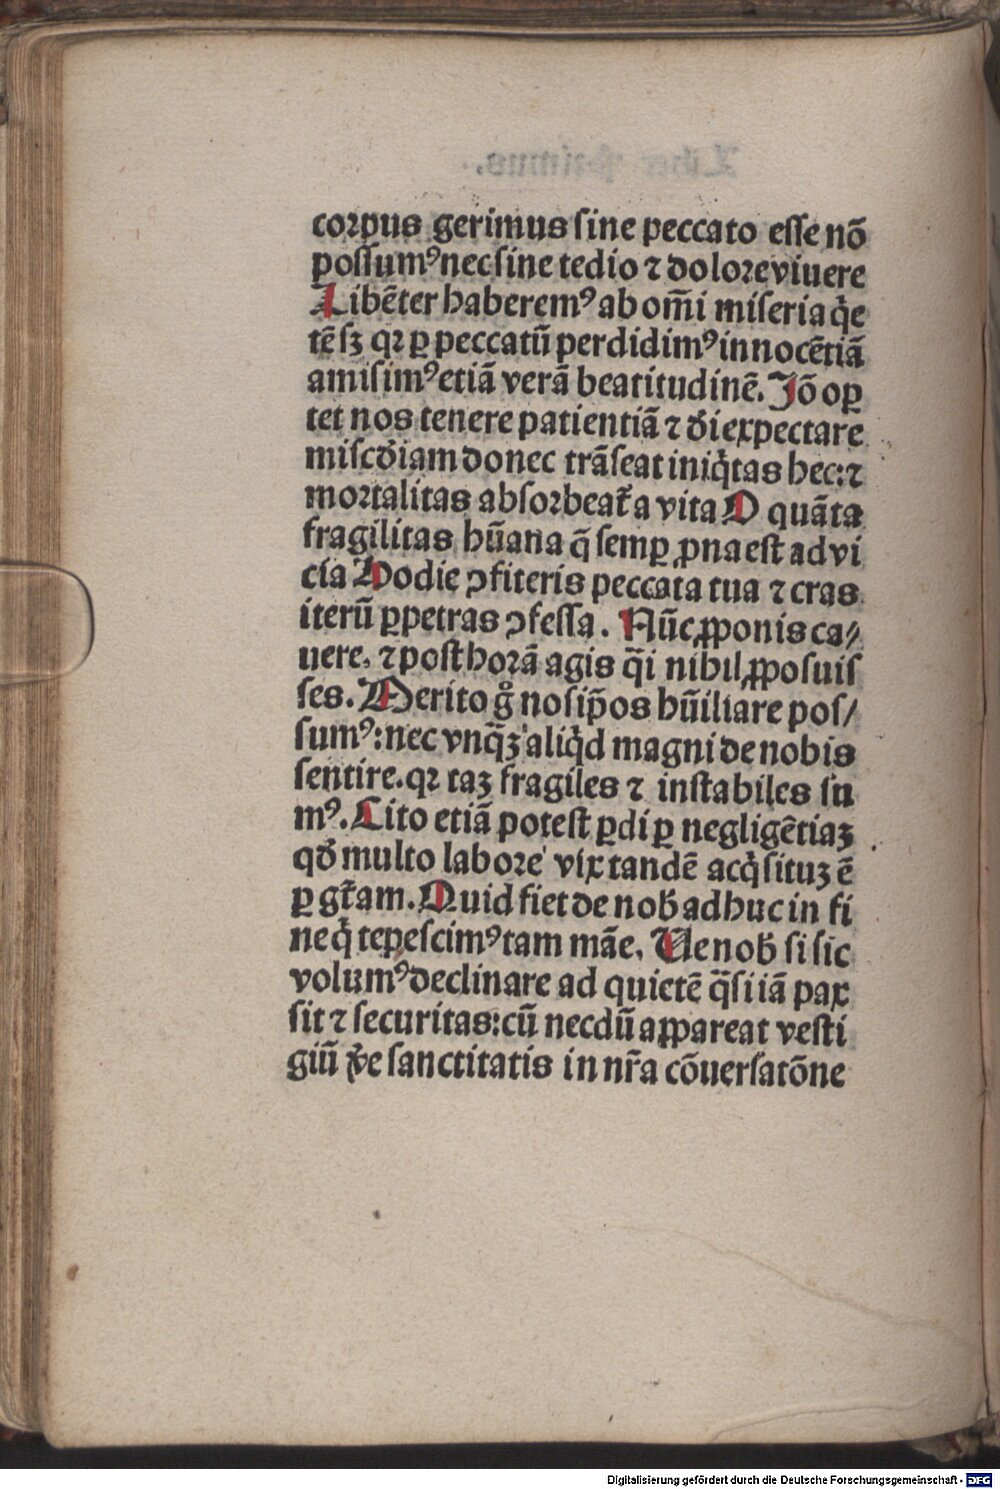 corpus gerimus sine peccato esse nõ
possumꝰ nec sine tedio ⁊ dolore viuere
Libẽter haberemꝰ ab om̃i miseria q̇e
tẽ sꝫ qꝛ ꝑ peccatũ perdidimꝰ innocẽtiã
amisimꝰ etiã verã beatitudinẽ. Jõ oꝑ
tet nos tenere patientiã ⁊ d̄i expectare
misc̄diam donec trãseat iniq̇tas hec: ⁊
mortalitas absorbeat᷑ a vita O quãta
fragilitas hũana q̃ semꝑ ꝓna est ad vi
cia Hodie ꝯfiteris peccata tua ⁊ cras
iterũ ꝑpetras ꝯfessa. Nũc ꝓponis ca⸗
uere, ⁊ post horã agis q̃i nihil ꝓposuis
ses. Merito g̊ nosip̃os hũiliare pos/
sumꝰ: nec vnq̃ꝫ aliq̇d magni de nobis
sentire. qꝛ taꝫ fragiles ⁊ instabiles su
mꝰ. Cito etiã potest ꝑdi ꝑ negligẽtiaꝫ
qd̄ multo labore vix tandẽ acq̇situꝫ ẽ
ꝑ gr̃am. Quid fiet de nob̄ adhuc in fi
ne q̇ tepescimꝰ tam mãe. Ve nob̄ si sic
volumꝰ declinare ad quietẽ q̃si iã pax
sit ⁊ securitas: cũ necdũ appareat vesti
giũ v̄e sanctitatis in nr̃a cõuersatõne
Digitalisierung gefördert durch die Deutsche Forschungsgemeinschaft - DFG